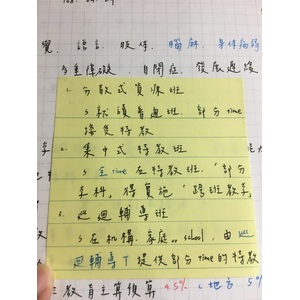 覺、語言、肢体、腦麻、身体病弱
多重障礙、自閉症、發展遲緩
1. 分散式資源班
就讀普通班，部分time
接受特教
2. 集中式特教班
全time在特教班，部分
學科，得實施「跨班教學
3. 巡迴輔導班
在机構、家庭or school，由
巡迴輔導T提供部分time的特教
教育主算預算 4.5% (地方 5%